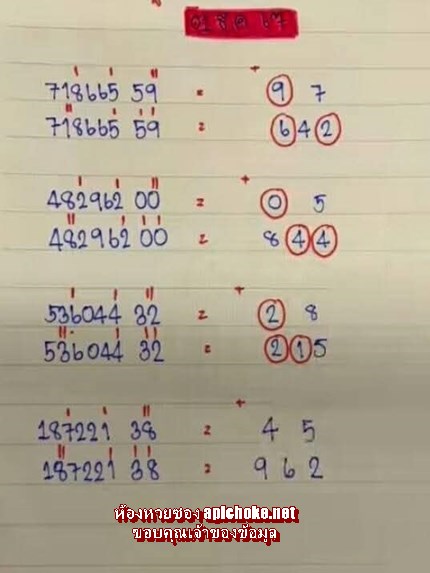 718665 59 = 9 7
718665 59 = 642
482962 00 = 0 5
482962 00 = 8 4 4
536044 32 = 2 8
536044 32 = 215
187221 38 = 4 5
187221 38 = 9 6 2
ห้องหวยซอง apichoke.net
ขอบคุณเจ้าของข้อมูล